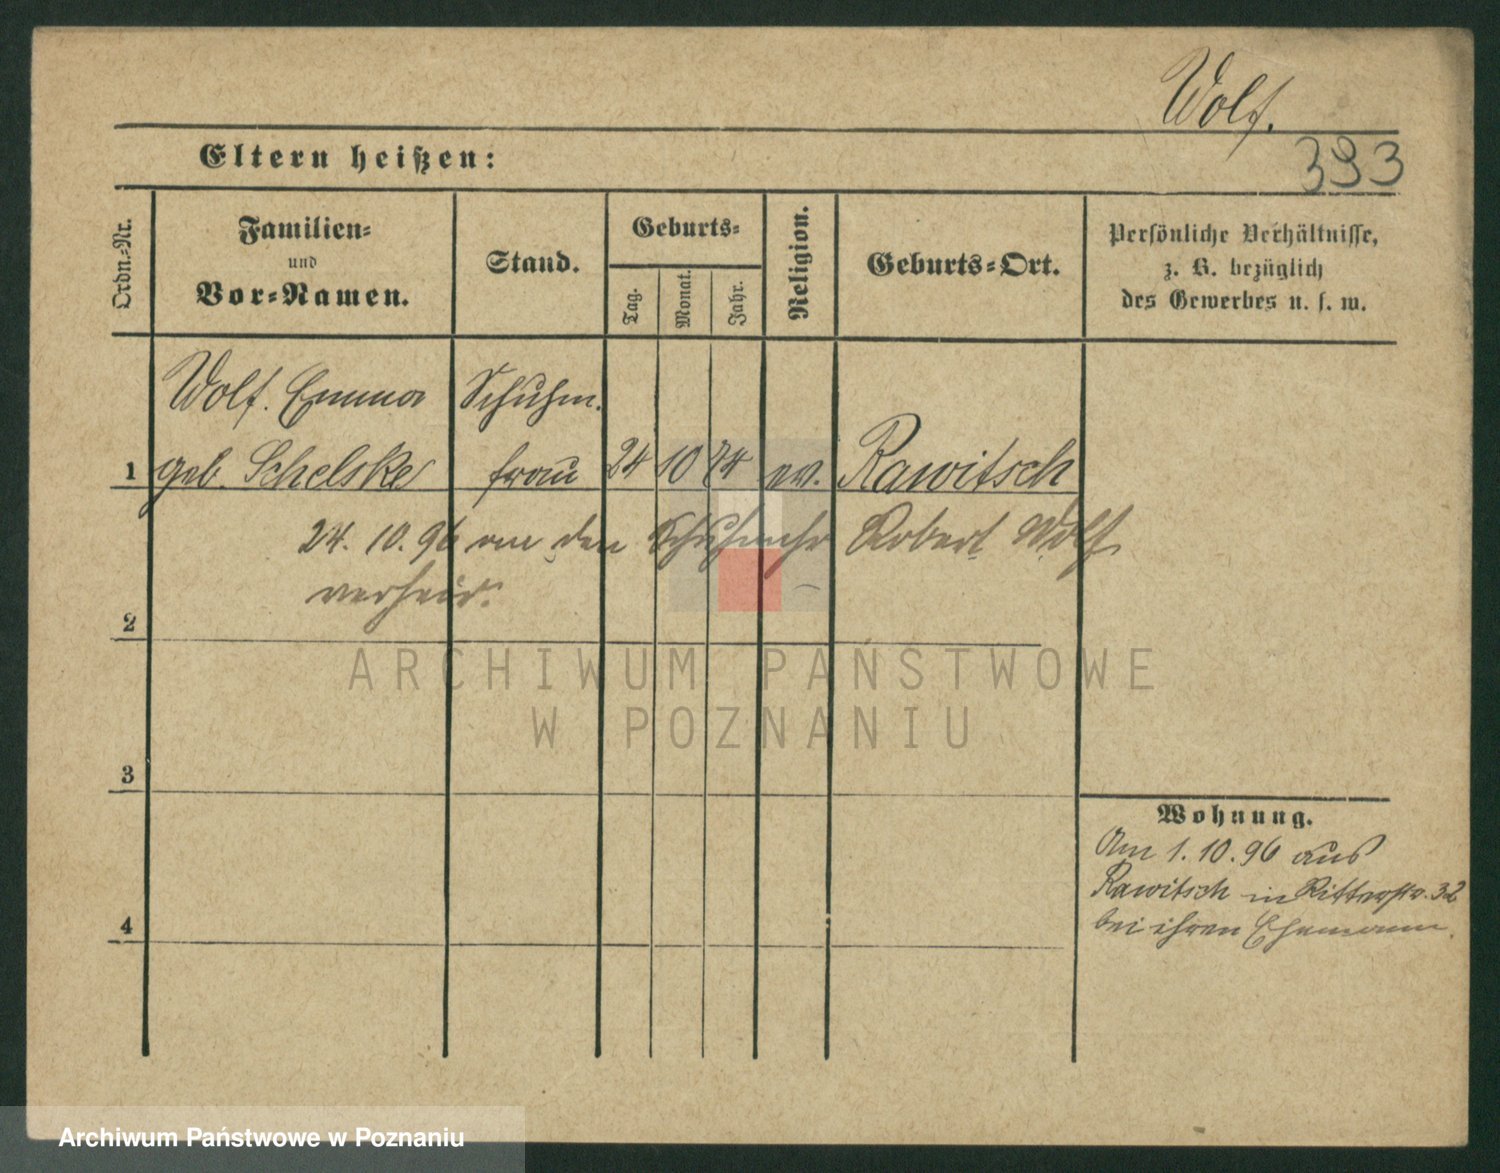 Wolf.
393
Eltern heißen:
Ordn.-Nr.
Familien-
und
Vor-Namen.
Stand.
Geburts-
Tag.
Monat.
Jahr.
Religion.
Geburts-Ort.
Persönliche Verhältnisse,
z. B. bezüglich
des Gewerbes u. s. w.
Wolf. Emma Schuhm.
1 geb. Schelske frau 24 10 74 ev. Rawitsch
24. 10. 96 an den Schuhmchr Robert Wolf
verheir.
2
3
Wohnung.
Am 1. 10. 96 aus
Rawitsch in Ritterstr. 32
bei ihren Ehemann.
4
ARCHIWUM PAŃSTWOWE
W POZNANIU
Archiwum Państwowe w Poznaniu